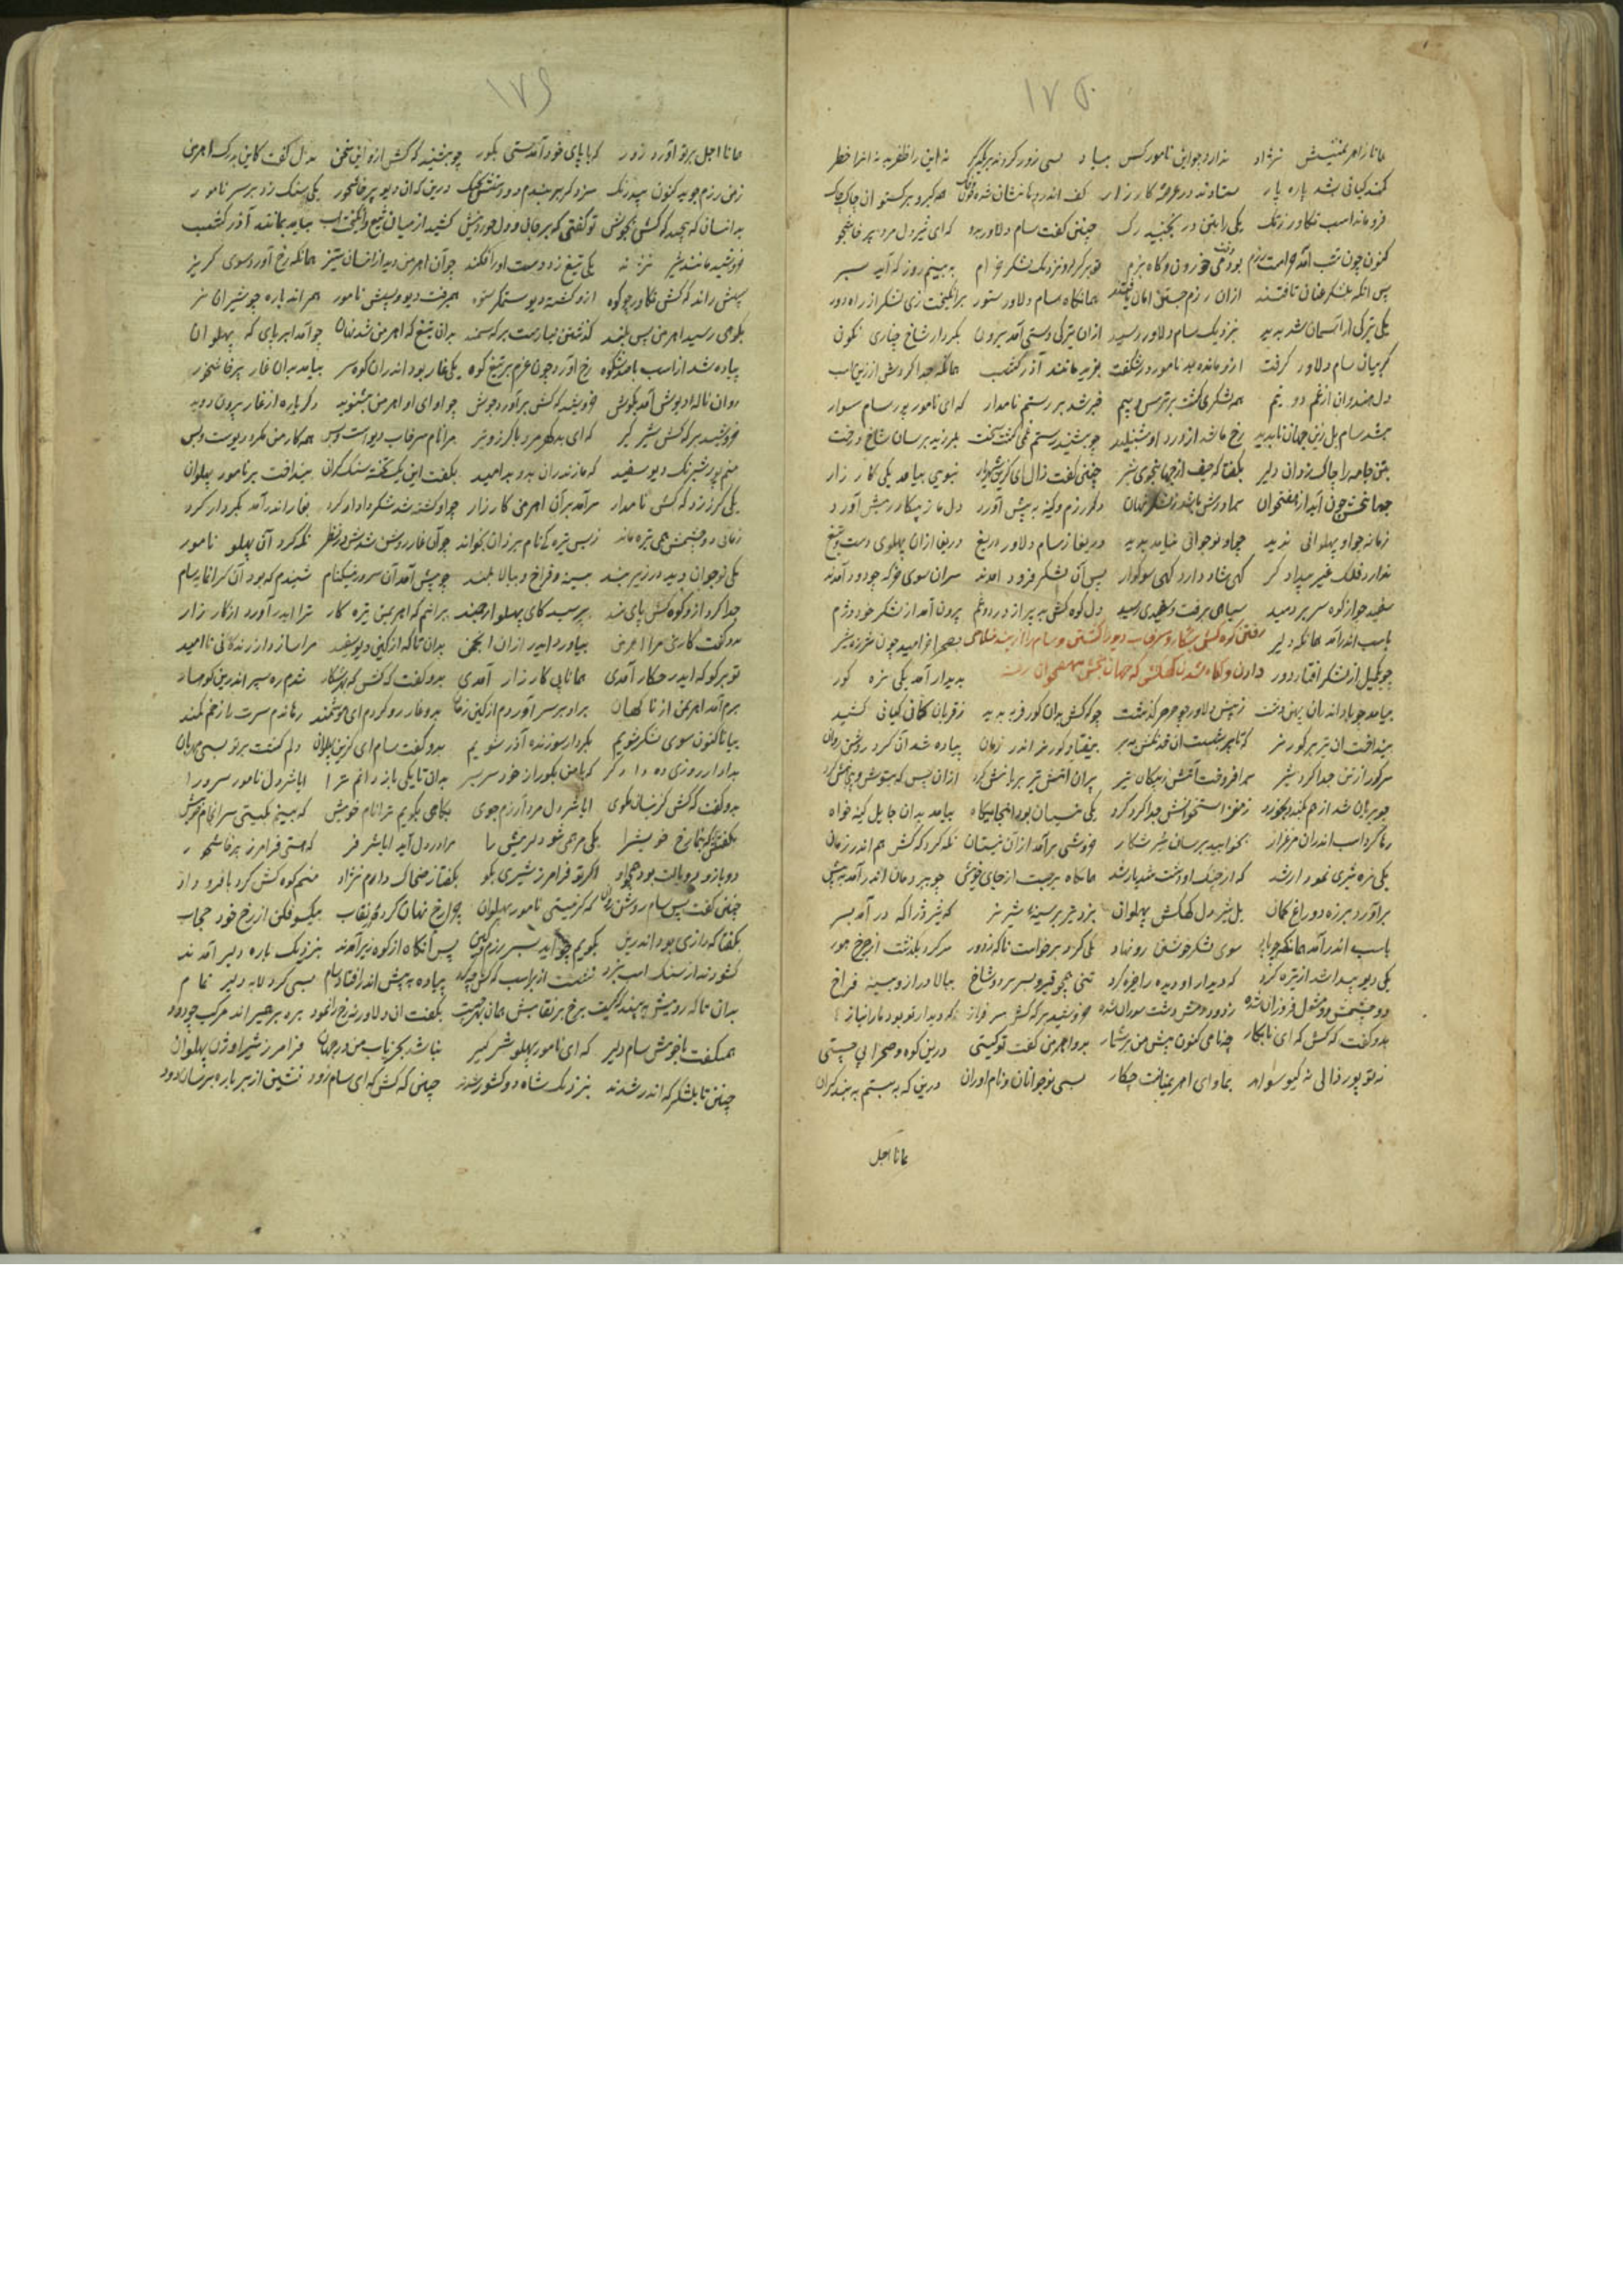 ۱۷۵
همانا ز اهریمنستش نژاد ندارد چو این نامور کس بیاد بسی زور کردند بر یکدگر نه این را ظفر بد نه آنرا خطر
کمند کیانی نشد پاره پار ستادند در عرصهٔ کارزار کف اندر دهانشان شده خون و خاک همه گبر و برگستوان چاک چاک
فرو ماند اسب تکاور ز تک یکی را بتن در نجنبید رگ چنین گفت سام دلاور بدو که ای شیردل مرد پرخاشجو
کنون چون شب آمد بودمی خوردن و گاه بزم تو برگرد و نزدیک لشکر خرام به بینیم روز که آید بسر
پس آنگه بلشکر عنان تافتند ازان رزم جستن امان یافتند همانگاه سام دلاور ستور برانگیخت زی لشکر از راه دور
یکی تیرگی ز آسمان شد پدید بنزدیک سام دلاور رسید ازان تیرگی دستی آمد برون بکردار شاخ چناری نگون
گریبان سام دلاور گرفت ازو مانده بد نامور در شگفت بغرید مانند آذرگشسب همانگه جدا کردش از زین اسب
دل هندوان از غم دو نیم همه لشکری گشت پر ترس و بیم خبر شد بر رستم نامدار که ای نامور پور سام سوار
بشد سام یل زین جهان ناپدید رخ ما شد از درد او شنبلید چو بشنید رستم غمی گشت سخت بلرزید برسان شاخ درخت
بتن جامه را چاک زد آن دلیر بگفتا که حیف از جهانجوی شیر چنین گفت زال ای گزین شهریار نبودی بیامد یکی کارزار
جهانبخش چون آید از هفتخوان دگر رزم و کینه به پیش آورد دل ما ز پیکار ریش آورد
زمانه چو او پهلوانی ندید چو او نوجوانی نیامد پدید دریغا ز سام دلاور دریغ دریغ ازان پهلوی دست و تیغ
ندارد فلک غیر بیداد کر گهی شاد دارد گهی سوگوار پس آن لشکر فرود آمدند سران سوی خرگه چو دود آمدند
سفیده چو از کوه سر بردمید سیاهی برفت و سفیدی رسید دل کوه کش بد پر از درد و غم برون آمد از لشکر خود دژم
باسب اندر آمد همانگه دلیر رفتن کوه کش بشکار و سرخاب دیو را کشتن و سام را از بند خلاصی بصحرا خرامید چون نره شیر
چو یک میل از لشکر افتاد دور دادن و آگاه شدن کهکش که جهان بخش بهفتخوان رفته پدیدار آمد یکی نره گور
بیامد چو باد اندران پهن دشت ز پیش دلاور چو صرصر گذشت چو که کش بدان گور فربه بدید ز قربان کمان کیانی کشید
بینداخت آن تیر بر گور نر که تا پر نشست آن خدنگش به بر بیفتاد گور نر اندر زمان پیاده شد آن گرد روشن روان
سر گور از تن جدا کرد شیر برافروخت آتش ز پیکان تیر بران آتش تیز بریانش کرد ازان پس
چو بریان شد از هم بکند و بخورد ز مغز استخوانش جدا کرد گرد یکی نیستان بود آنجایگاه بیامد بدان جا یل کینه خواه
رها کرد اسب اندران مرغزار بخوابید برسان شیر شکار خروشی برآمد ازان نیستان نگه کرد که کش هم اندر زمان
یکی نره شیری نمودار شد که از جنگ او دشت خونبار شد همانگاه برجست از جای خویش چو ببر دمان اندر آمد به پیش
برآورد بر زه دو زاغ کمان یل شیردل کهکش پهلوان بزد تیر بر سینهٔ شیر نر که شیر ژیان را که در آمد بسر
باسب اندر آمد همانگه چو باد سوی لشکر خویشتن رو نهاد یکی گرد برخاست ناگه ز دور سر گرد بگذشت از چرخ هور
یکی دیو پیدا شد از تیره گرد که دیدار او دیده را خیره کرد تنی همچو قیر و بسر بر دو شاخ ببالا دراز و بسینه فراخ
دو چشمش دو مشعل فروزان شده ز دود دمش دشت سوزان شده خروشید بر که کش سرفراز که دیدار تو بود ما را نیاز
بدو گفت که کش که ای نابکار چه نامی کنون پیش من برشمار بدو اهرمن گفت تو کیستی درین کوه و صحرا پی چیستی
نه تو پور زالی نه گیو سوار بماوای اهریمنانت چکار بسی نوجوانان و نام آوران درین که ببستم به بند گران
همانا اجل
۱۷۶
همانا اجل بر تو آورد زور که با پای خود آمدستی بگور چو بشنید که کش ازو این سخن بدل گفت کاین بدرگ اهرمن
ز من رزم جوید کنون بیدرنگ سزد گر ببندم دو دستش بجنگ درین که آن دیو پرخاشخر یکی سنگ زد بر سر نامور
بدانسان که پیچید که کش بخویش تو گفتی که بر جان و دل خورد نیش کشید از میان تیغ و انگیخت اسب بیامد بمانند آذرگشسب
خروشید مانند شیر نر یکی تیغ زد دست او را فکند چو آن اهرمن دید ازانسان ستیز همانگه رخ آورد سوی گریز
پسش راند که کش تکاور چو کوه ازو گشته دیو ستمگر ستوه همی رفت دیو و پسش نامور همی راند باره چو شیران نر
بکوهی رسید اهرمن بس بلند گذشتن نیارست بر که سمند بدان تیغ که اهرمن شد نهان چو آمد ابر پای که پهلوان
پیاده شد از اسب با صد شکوه رخ آورد چون غرم بر تیغ کوه یکی غار بود اندران کوهسر بیامد بدان غار پرخاشخر
روان نالهٔ دیوش آمد بگوش خروشید که کش برآورد جوش چو آوای او اهرمن بشنوید دگرباره از غار بیرون دوید
خروشید بر که کش شیرگیر که ای بدگهر مرد با گرز و تیر مرا نام سرخاب دیو است و بس همه کار من مکر و ریوست و بس
منم پور شبرنگ دیو سفید که مازندران بد بدو پرامید بگفت این یک تخته سنگ گران بینداخت بر نامور پهلوان
یکی گرز زد که کش نامدار سر آمد بران اهرمن کارزار چو او کشته شد شکر دادار کرد بغار اندر آمد بکردار گرد
زمانی دو چشمش همی تیره ماند ز بس تیره گی نام یزدان بخواند چو آن غار روشن شدش در نظر نگه کرد آن پهلو نامور
یکی نوجوان دید در زیر بند بسینه فراخ و ببالا بلند چو پیش آمد آن سرور نیکنام شنیدم که بود آن گرانمایه سام
جدا کرد ازو کوه کش پای بند بپرسید کای پهلو ارجمند برانم که اهریمن تیره کار ترا ایدر آورد از کارزار
بدو گفت کاری مرا اهرمن بیاورد ایدر ازان انجمن بدان تا که از کین دیو سفید مرا سازد از زندگانی ناامید
تو برگو که ایدر چکار آمدی همانا پی کارزار آمدی بدو گفت که کش که بهر شکار شدم ره سپر اندرین کوهسار
برم آمد اهرمن از ناگهان برو بر سر آوردم از کین زمان بدو غار رو کردم ای هوشمند رهاندم سرت را ز خم کمند
بیا تا کنون سوی لشکر شویم بکردار سوزنده آذر شویم بدو گفت سام ای گزین پهلوان دلم گشت بر تو بسی مهربان
بدادار روزی ده دادگر که با من بگو راز خود سر بسر بدان تا یکی باز رانم ترا ایا شیردل نامور سرورا
بدو گفت که کش کزینسان مگوی ایا شیردل مرد آزرم جوی بگاهی بگویم ترا نام خویش که بینم بگیتی سرانجام خویش
بگفتش که بنما رخ خویش را یکی مرهمی شو دل ریش را مرا در دل آید ایا شیر فر که هستی فرامرز پرخاشخر
دو بازو و یال بود همچو او اگر تو فرامرز شیری بگو بگفتا ز ضحاک دارم نژاد منم کوه کش گرد با فر و داد
چنین گفت پس سام روشن روان که گر نیستی نامور پهلوان چرا رخ نهان کرده در نقاب بیکسو فکن از رخ خود حجاب
بگفتا که رازی بود اندرین بگویم چو آید بسر رزم و کین پس آنگاه از کوه زیر آمدند بنزدیک باره دلیر آمدند
پیاده به پیش اندر افتاد سام بسی کرد لابه دلیر تمام
بدان تا که رویش به بیند که کیست برخ بر نقابش همان بهر چیست بگفت آن دلاور نه رخ را نمود بره بر همی راند مرکب چو دود
همی گفت با خویش سام دلیر که ای نامور پهلو شیرگیر نباشد بجز باب من در جهان فرامرز شیراوژن پهلوان
چنین تا بلشکر که اندر شدند بنزدیک شاه دو کشور شدند چنین گفت که کش که ای سام زود نشین از بر باره برسان دود